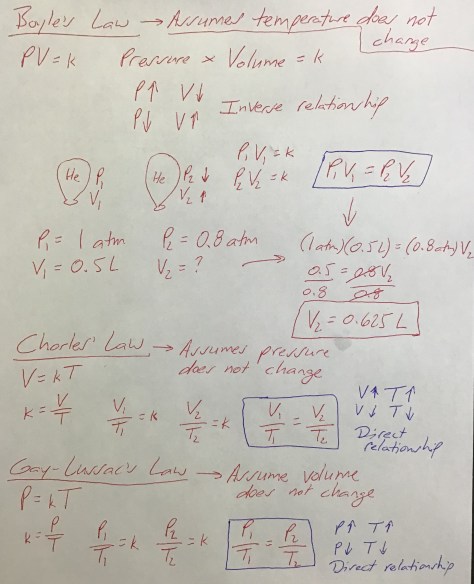 Boyle's Law → Assumes temperature does not
change
PV = k Pressure × Volume = k
P↑ V↓
P↓ V↑ Inverse relationship
P₁V₁ = k
P₂V₂ = k
P₁V₁ = P₂V₂
He P₁ V₁
He P₂ ↓ V₂ ↑
P₁ = 1 atm P₂ = 0.8 atm
V₁ = 0.5 L V₂ = ? →
(1 atm)(0.5 L) = (0.8 atm) V₂
0.5/0.8 = 0.8V₂/0.8
V₂ = 0.625 L
Charles' Law → Assumes pressure
does not change
V = kT
k = V/T V₁/T₁ = k V₂/T₂ = k V₁/T₁ = V₂/T₂
V↑ T↑
V↓ T↓
Direct
relationship
Gay-Lussac's Law → Assume volume
does not change
P = kT
k = P/T P₁/T₁ = k P₂/T₂ = k P₁/T₁ = P₂/T₂
P↑ T↑
P↓ T↓
Direct relationship